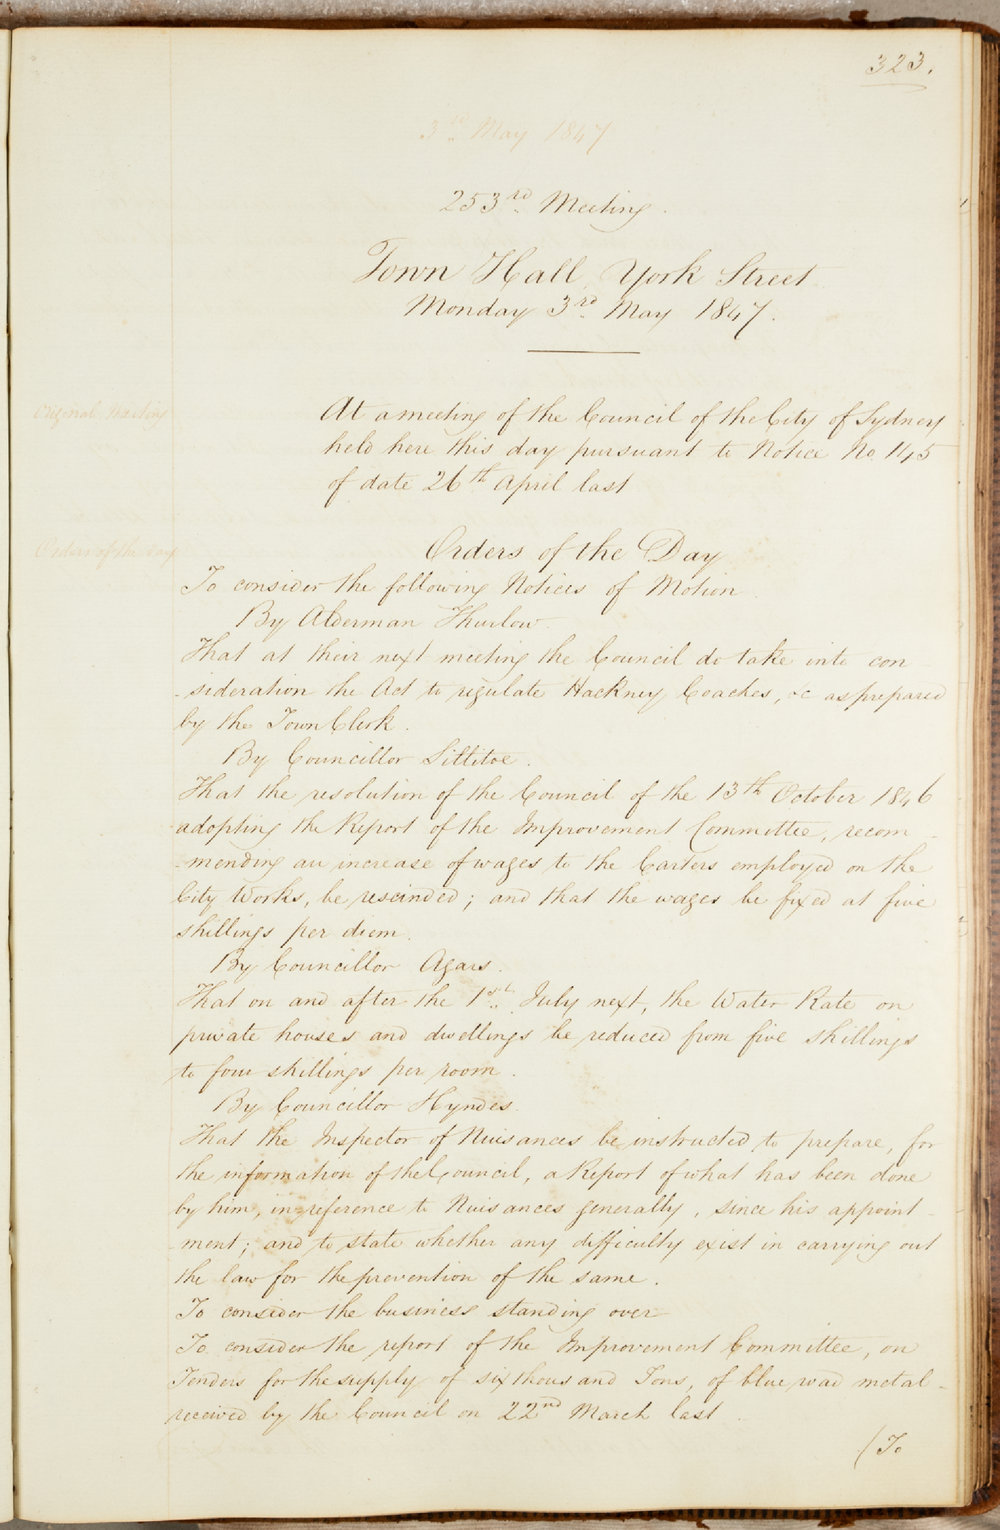 323.
3rd May 1847
253rd Meeting.
Town Hall, York Street
Monday 3rd May 1847.
Original Meeting
At a meeting of the Council of the City of Sydney
held here this day pursuant to Notice No 145
of date 26th April last
Orders of the Day
Orders of the Day
To consider the following Notices of Motion.
By Alderman Thurlow.
That at their next meeting the Council do take into con
-sideration the Act to regulate Hackney Coaches, &c as prepared
by the Town Clerk.
By Councillor Sillitoe.
That the resolution of the Council of the 13th October 1846
adopting the Report of the Improvement Committee, recom-
-mending an increase of wages to the Carters employed on the
City Works, be rescinded; and that the wages be fixed at five
shillings per diem.
By Councillor Agars.
That on and after the 1st July next, the Water Rate on
private houses and dwellings be reduced from five shillings
to four shillings per room.
By Councillor Hyndes.
That the Inspector of Nuisances be instructed to prepare, for
the information of the Council, a Report of what has been done
by him, in reference to Nuisances generally, since his appoint-
-ment; and to state whether any difficulty exist in carrying out
the law for the prevention of the same.
To consider the business standing over
To consider the report of the Improvement Committee, on
Tenders for the supply of six thousand Tons, of blue road metal-
received by the Council on 22nd March last.
(To